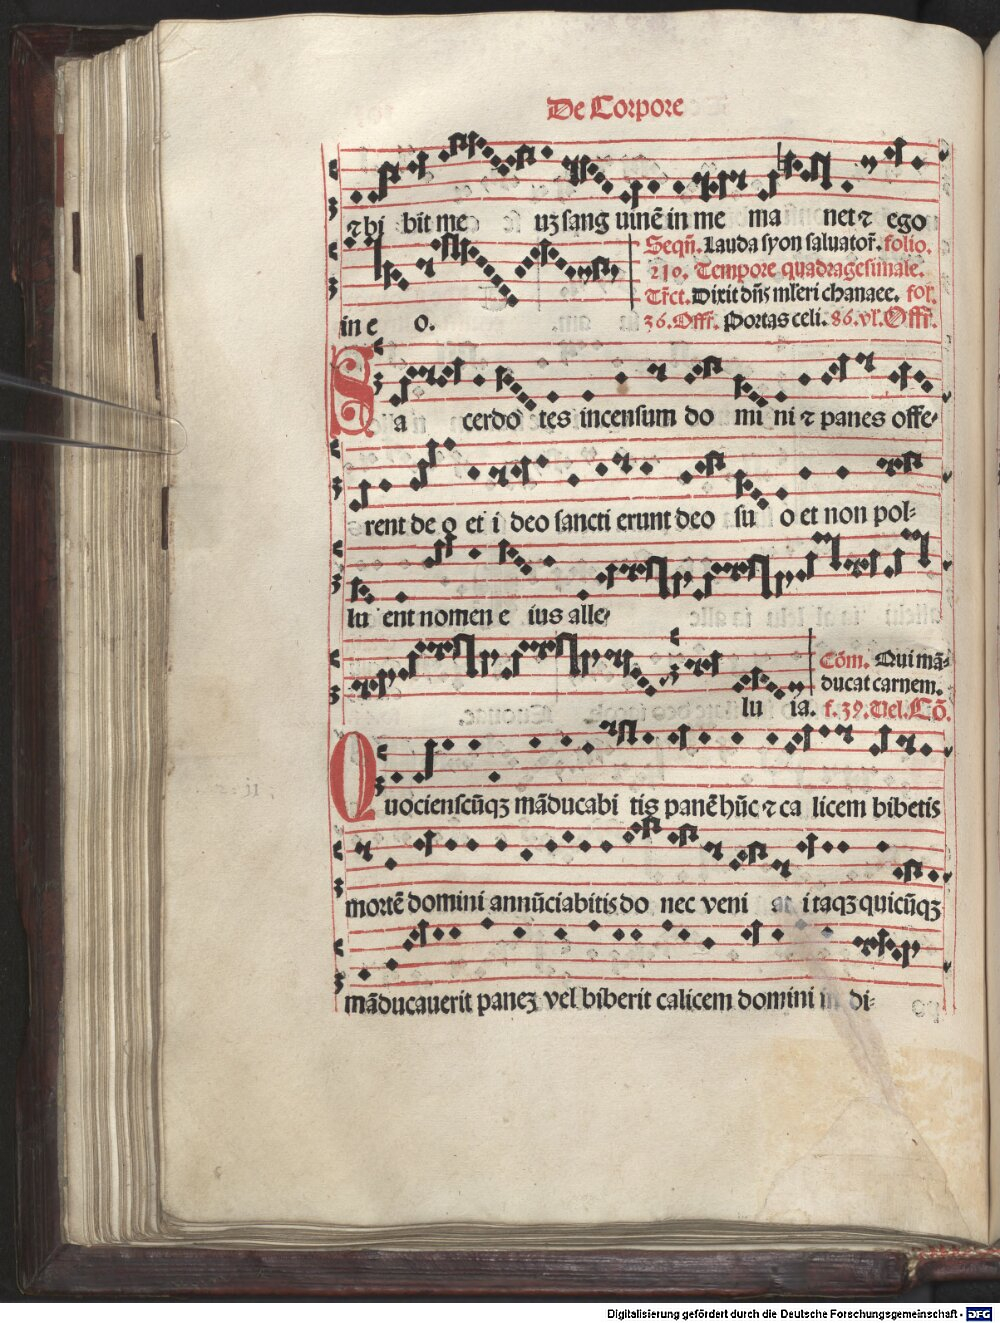 De Corpore
⁊ bi bit me uʒ sang uinē in me ma net ⁊ ego
in e o.
Seqn̄. Lauda syon saluatoꝛ̄. folio.
210. Tempore quadragesimale.
Tr̄ct. Dixit dn̄s mĺeri chanaee. fol.
36. Offr̄. Portas celi. 86. vĺ. Offr̄.
Sa cerdo tes incensum do mi ni ⁊ panes offe-
rent de o et i deo sancti erunt deo su o et non pol-
lu ent nomen e ius alle-
lu ia.
Cōm. Qui mā-
ducat carnem.
f. 39. Uel. Cō.
Quocienscūqʒ māducabi tis panē hūc ⁊ ca licem bibetis
mortē domini annūciabitis do nec veni at itaqʒ quicūqʒ
māducauerit paneʒ vel biberit calicem domini in di-
Digitalisierung gefördert durch die Deutsche Forschungsgemeinschaft - DFG